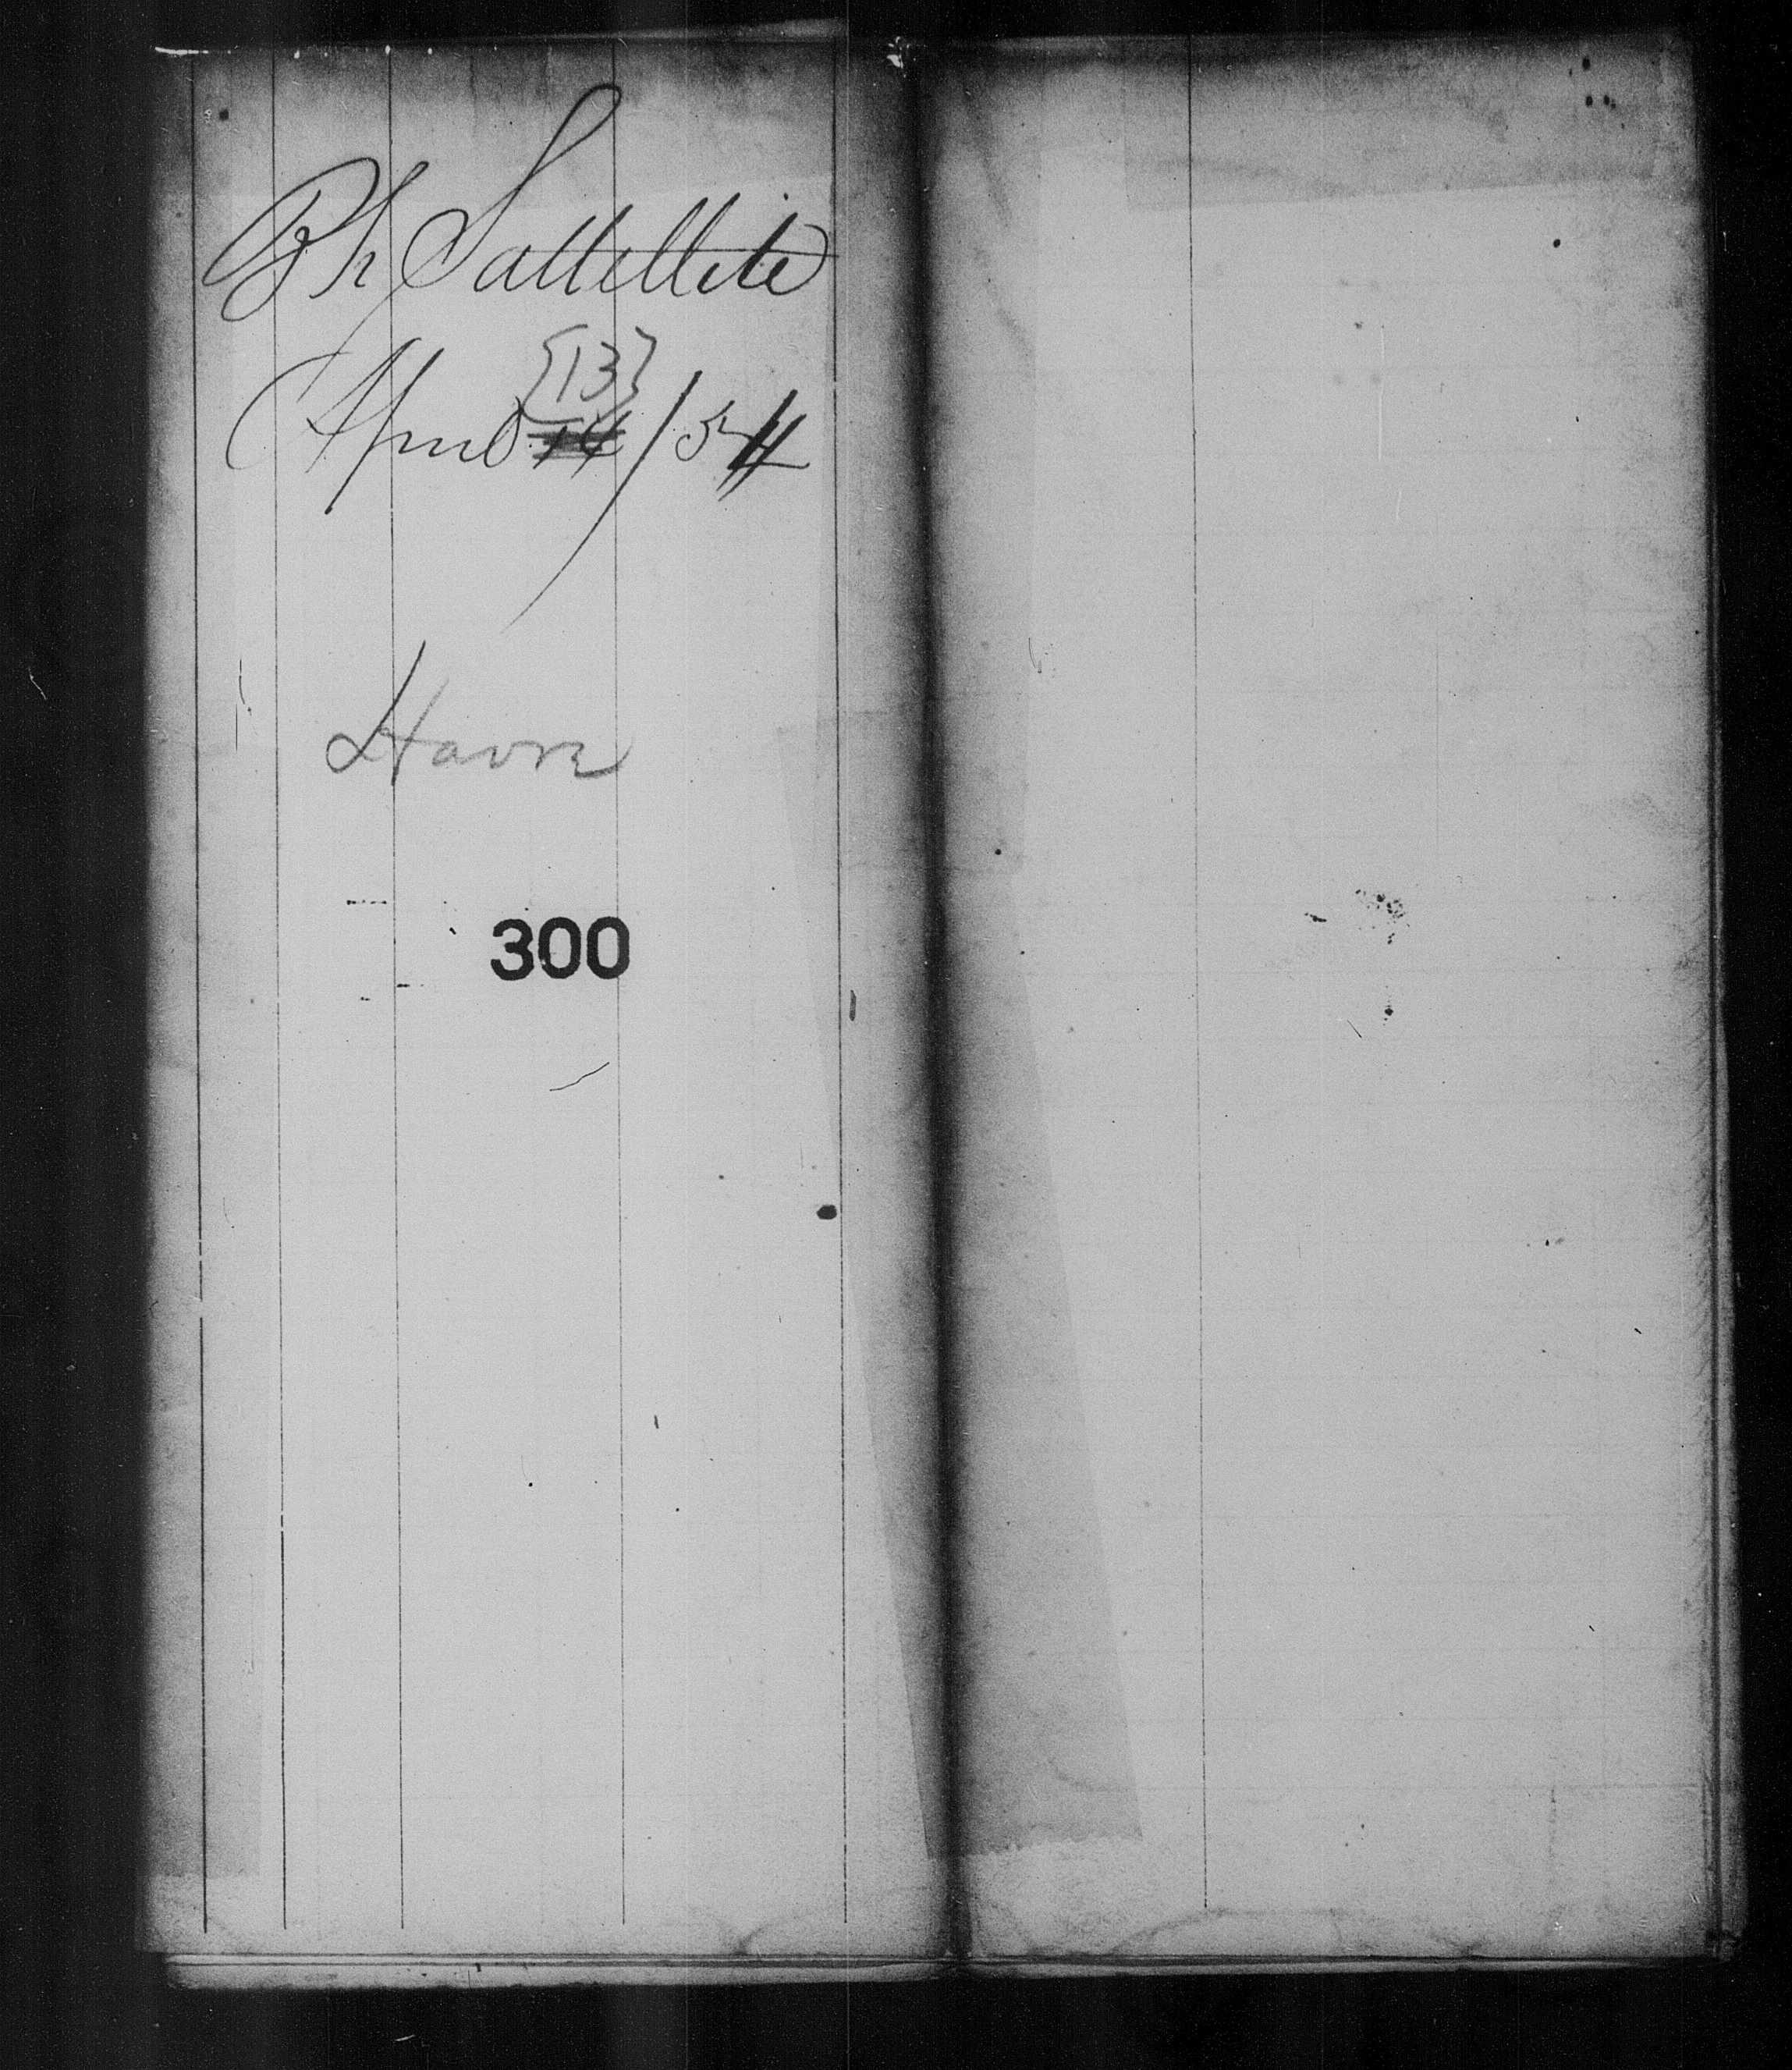 Bk Sattellite
{13}
April 14/54
Havre
300